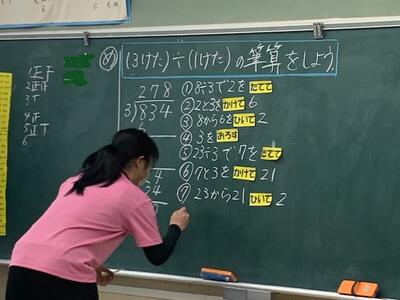 ⑧ (3けた)÷(1けた)の筆算をしよう。
1 正正
2 正正
3 T
4 正
5 正T
6
278
3)834
6
4
24
① 8÷3で2をたてて
② 2と3をかけて6
③ 8から6をひいて2
④ 3をおろす
⑤ 23÷3で7をたてて
⑥ 7と3をかけて21
⑦ 23から21ひいて2